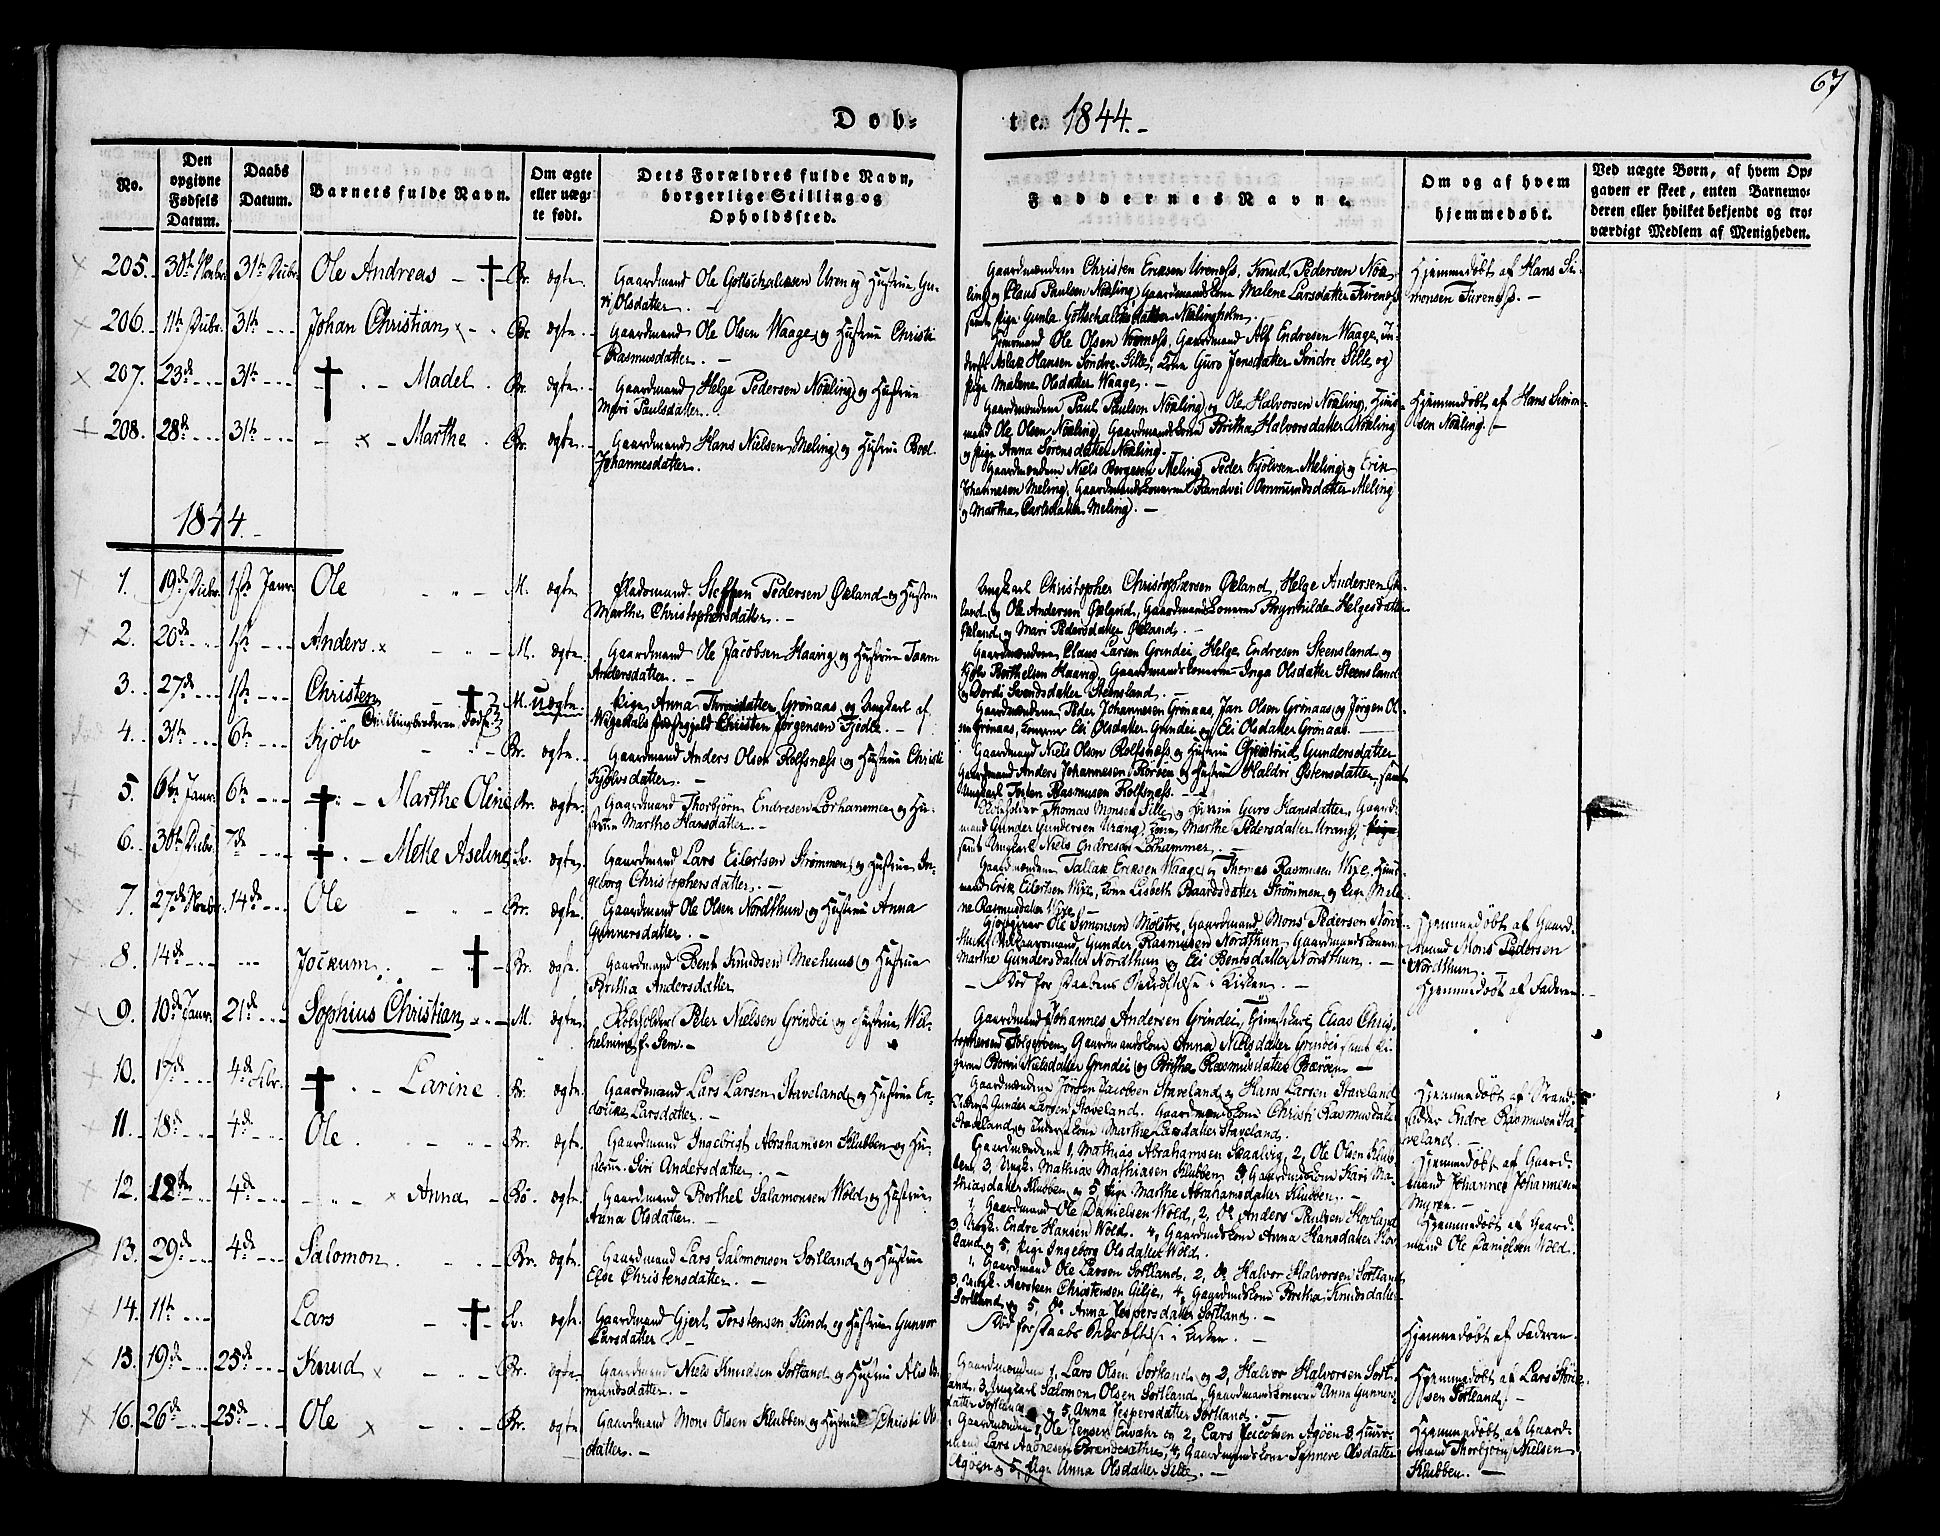 67
Døb-
te. 1844.-
No.
Den
opgivne
Fødsels
Datum.
Daabs
Datum.
Barnets fulde Navn.
Om ægte
eller uæg-
te født.
Dets Forældres fulde Navn,
borgerlige Stilling og
Opholdssted.
Faddernes Navne.
Om og af hvem
hjemmedøbt.
Ved uægte Børn, af hvem Op-
gaven er skeet, enten Barnemo-
deren eller hvilket bekjendt og tro-
værdigt Medlem af Menigheden.
205. 30te Novbr. 31te Decbr. Ole Andreas Br. ægte.
Gaardmand Ole Gottschalksen Uren og Hustrue Gu-
ri Olsdatter. -
Gaardmændene Christen Eriksen Ureness, Knud Pedersen Nox-
ling og Claus Paulsen Noxling, Gaardmandskone Malene Larsdatter Fureness
samt Pige Gunla Gottschalksdatter
Hjemmedøbt af Hans Si-
monsen Fureness. -
206. 11te Decbr. 31te Johan Christian Br. ægte
Gaardmand Ole Olsen Waage og Hustrue Christi
Rasmusdatter. -
Ole Olsen Gaardmand Alf Endresen Waage, In-
derst Aslak Hansen Søndre Sille, Kone Guro Jensdatter Søndre Sille og
Pige Malene Olsdatter Waage. -
207. 23de 31te Madel Br. ægte.
Gaardmand Helge Pedersen Noxling og Hustrue
Mari Paulsdatter. -
Gaardmændene Paul Paulsen Noxling og Ole Halvorsen Noxling, Huus-
mand Ole Olsen Noxling, Gaardmandskone Britha Halvorsdatter Noxling
og Pige Anna Sørensdatter Noxling.
Hjemmedøbt af Hans Simon-
sen Noxling. -
208. 28de 31te Marthe Br. ægte.
Gaardmand Hans Nielsen Meling og Hustrue Boel
Johannesdatter.
Gaardmændene Niels Børgesen Meling, Peder Kjølvsen Meling og Erik
Johannesen Meling, Gaardmandskonerne Randvei Omundsdatter Meling
og Martha Carlsdatter Meling. -
1844.-
1. 19de Decbr. 1ste Janr. Ole M. ægte.
Pladsmand Steffen Pedersen Økland og Hustrue
Marthe Christophersdatter. -
Ungkarl Christopher Christophersen Økland, Helge Andersen Øk-
land og Ole Andersen Økland, Gaardmandskonerne Helgesdatter
Økland og Mari Pedersdatter Økland. -
2. 20de 1ste Anders M. ægte.
Gaardmand Ole Jacobsen Haavig og Hustrue
Andersdatter. -
Gaardmændene Claus Larsen Grindei, Helge Endresen Steensland og
Berthelsen Haavig, Gaardmandskonerne Inga Olsdatter Steensland
og Dordi Svendsdatter Steensland. -
3. 27de 1ste Christen M. uægte.
Pige Anna datter Grønaas og Ungkarl af
Wigedals Christen Jørgensen Fjedle. -
Gaardmændene Peder Johannesen Grønaas, Jan Olsen Grønaas og Jørgen Ol-
sen Grønaas, Konerne Eli Olsdatter Grindei og Eli Olsdatter Grønaas.
4. 31te 6te Kjølv Br. ægte.
Gaardmand Anders Olsen Rolfsness og Hustrue Christi
Kjølvsdatter. -
Gaardmand Niels Olsen Rolfsness og Hustrue Gundersdatter
Gaardmand Anders Johannesen Børøen og Hustrue Østensdatter, samt
Ungkarl Rasmusen Rolfsness. -
5. 6te Janr. 6te Marthe Oline Br. ægte.
Gaardmand Thorbjørn Endresen Lorhammer og Hu-
strue Martha Hansdatter. -
Thomas Monsen Sille og Hustrue Guro Hansdatter, Gaard-
mand Gunder Gundersen Urang, Kone Marthe Pedersdatter Urang,
samt Ungkarl Niels Endresen Lorhammer. -
6. 30te Decbr. 7de Mette Aseline Sv. ægte
Gaardmand Lars Eilertsen Strømmen og Hustrue In-
geborg Christophersdatter. -
Gaardmændene Tallak Eriksen Waage og Thomas Rasmusen Wixe, Huus-
mand Erik Eilertsen Wixe, Kone Lisbeth Baardsdatter Strømmen og Pige Male-
ne Rasmusdatter Wixe. -
7. 27de Novbr. 14de Ole Br. ægte
Gaardmand Ole Olsen Nordthun og Hustrue Anna
Gunnersdatter. -
Ole Simonsen Gaardmand Mons Pedersen Nord-
thun, Gunder Rasmusen Nordthun, Gaardmandskonerne
Marthe Gundersdatter Nordthun og Eli Bentsdatter Nordthun. -
Hjemmedøbt af Gaard-
mand Mons Pedersen
Nordthun. -
8. 14de Jockum Br. ægte.
Gaardmand Bent Knudsen Mechuus og Hustrue
Brithia Andersdatter
- Død før Daabens Bekræftelse i Kirken. -
Hjemmedøbt af Faderen. -
9. 10de Janr. 21de Sophius Christian M. ægte.
Peter Nielsen Grindei og Hustrue Wil-
helmine f. Sem. -
Gaardmand Johannes Andersen Grindei, Elias Chris-
tophersen Gaardmandskone Anna Nielsdatter Grindei samt Pi-
gerne Nielsdatter Grindei og Britha Rasmusdatter Børøen. -
10. 17de 4de Febr. Larine Br. ægte.
Gaardmand Lars Larsen Staveland og Hustrue En-
Larsdatter. -
Gaardmændene Jacobsen Staveland og Hans Larsen Staveland
Inderst Gunder Larsen Staveland. Gaardmandskone Christi Rasmusdatter
Staveland og Inderstkone Marthe Larsdatter Staveland.
Hjemmedøbt af
Endre Rasmusen Sta-
veland.
11. 18de 4de Ole Br. ægte.
Gaardmand Ingebrigt Abrahamsen Klubben og Hu-
strue Siri Andersdatter. -
Gaardmændene 1, Mathias Abrahamsen Skaalvig, 2, Ole Olsen Klub-
ben, 3, Ungk. Mathias Mathiasen Klubben, 4, Gaardmandskone Kari Ma-
thiasdatter Klubben og 5, Pige Marthe Abrahamsdatter Klubben. -
Hjemmedøbt af Gaard-
mand Johannes Johannesen
Myren. -
12. 12te 4de Anna Bø. ægte.
Gaardmand Berthel Salamonsen Wold og Hustrue
Anna Olsdatter. -
1, Gaardmand Ole Danielsen Wold, 2, do Anders Paulsen Hovland
3, Ungk. Endre Hansen Wold. 4, Gaardmandskone Anna Hansdatter Hov-
land og 5, Pige Ingeborg Olsdatter Wold.
Hjemmedøbt af Gaard-
mand Ole Danielsen Wold.
13. 29de 4de Salomon Br. ægte.
Gaardmand Lars Salomonsen Sortland og Hustrue
Else Christensdatter. -
1, Gaardmand Ole Larsen Sortland, 2, do Halvor Halvorsen Sortland
3, Ungk. Christensen Gilje, 4, Gaardmandskone Brethe Knudsdatter
Sortland og 5, do Anna Jespersdatter Sortland. -
14. 11te Lars Sv. ægte.
Gaardmand Gjert Torstensen Kind og Hustrue Gunvor
Larsdatter -
Død før Daabs Bekræftelse i Kirken. -
Hjemmedøbt af Faderen.
15. 19de 25de Knud Br. ægte
Gaardmand Niels Knudsen Sortland og Hustrue
mundsdatter. -
Gaardmændene 1, Lars Olsen Sortland og 2, Halvor Halvorsen Sort-
land, 3, Ungkarl Salomon Olsen Sortland, Gaardmandskonerne Anna Gunners-
datter Sortland og 5, Anna Jespersdatter Sortland. -
Hjemmedøbt af Lars
sen Sortland. -
16. 26de 25de Ole Br. ægte.
Gaardmand Mons Olsen Klubben og Hustrue Christi Ols-
datter. -
Gaardmændene 1, Ole Jensen og 2, Lars Jacobsen Agøen 3, Huus-
mand Lars 4, Gaardmandskone Synnere Olsdatter
Agøen og 5, Pige Anna Olsdatter Sille. -
Hjemmedøbt af Gaard-
mand Thorbjørn Nielsen
Klubben. -